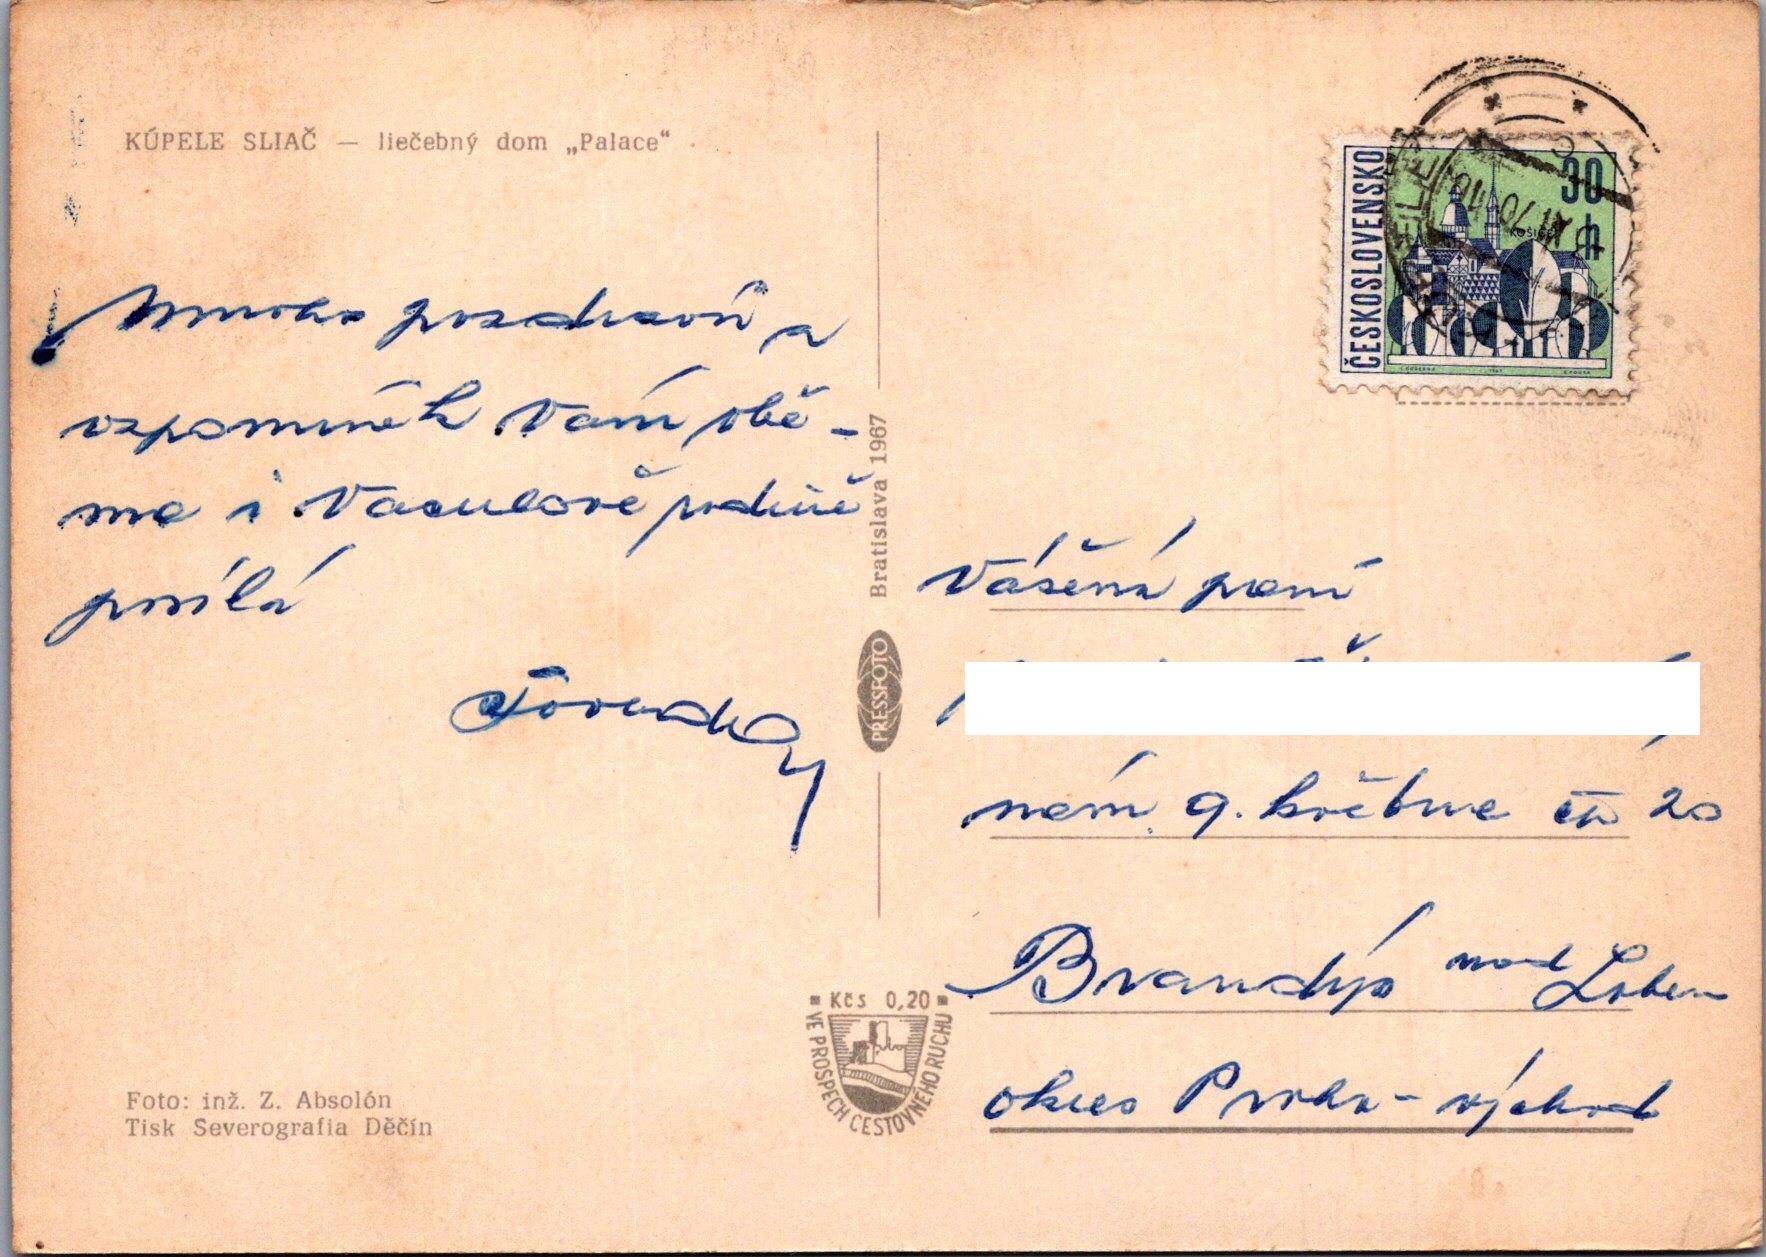 KÚPELE SLIAČ — liečebný dom „Palace“
Mnoho pozdravů a
vzpomínek Vám obě-
ma i Vaculově rodině
posílá
Bratislava 1967
PRESSFOTO
Kčs 0,20
VE PROSPECH CESTOVNÉHO RUCHU
Foto: inž. Z. Absolón
Tisk Severografia Děčín
ČESKOSLOVENSKO
30
h
KOŠICE
Vážená paní
nám. 9. května čp 20
Brandýs nad Labem
okres Praha-východ